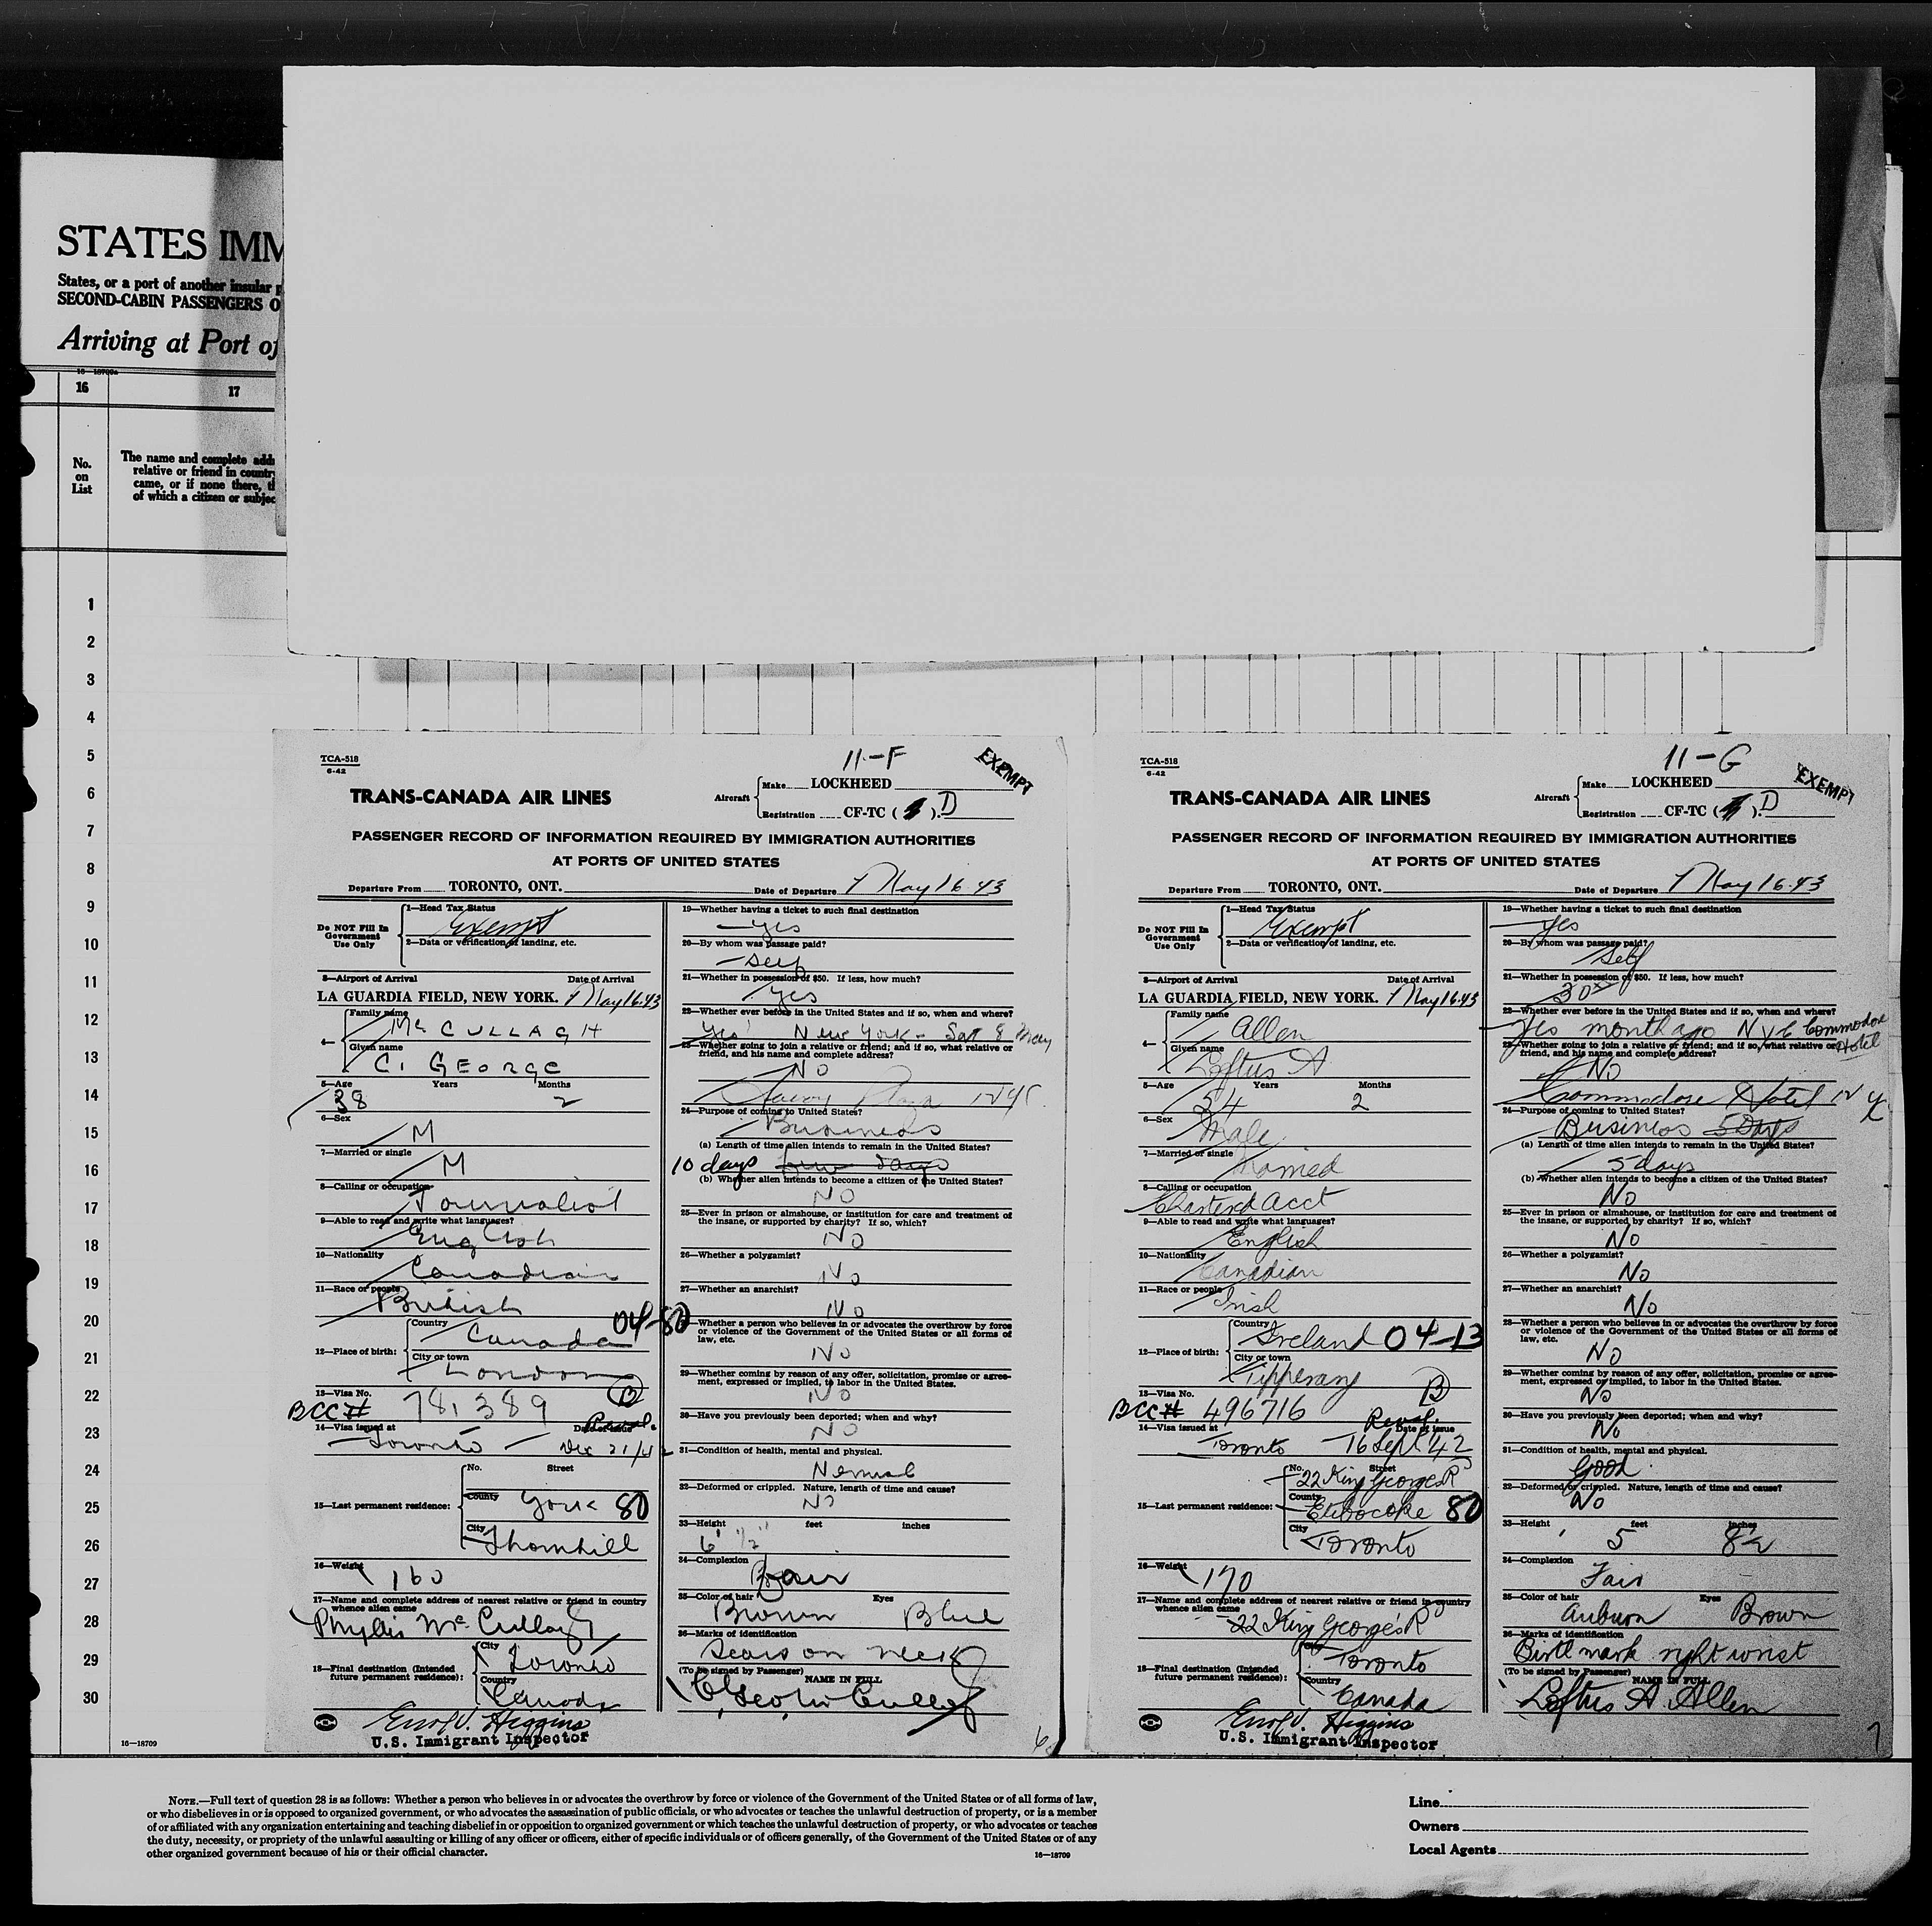 STATES IMM
States, or a port of another insular
SECOND-CABIN PASSENGERS O
Arriving at Port of
16—18709a
16
17
No.
on
List
The name and complete add
relative or friend in countr
came, or if none there, th
of which a citizen or subjec
1
2
3
4
5
6
7
8
9
10
11
12
13
14
15
16
17
18
19
20
21
22
23
24
25
26
27
28
29
30
16—18709
TCA-518
6-42
11-F
EXEMPT
TRANS-CANADA AIR LINES
Aircraft
Make LOCKHEED
Registration CF-TC ( ). D
PASSENGER RECORD OF INFORMATION REQUIRED BY IMMIGRATION AUTHORITIES
AT PORTS OF UNITED STATES
Departure From TORONTO, ONT. Date of Departure May 16·43
Do NOT Fill In
Government
Use Only
1—Head Tax Status
Exempt
2—Data or verification of landing, etc.
3—Airport of Arrival Date of Arrival
LA GUARDIA FIELD, NEW YORK. May 16·43
4—
Family name
Mc CULLAGH
Given name
C. GEORGE
5—Age Years Months
38 2
6—Sex
M
7—Married or single
M
8—Calling or occupation
Journalist
9—Able to read and write what languages?
English
10—Nationality
Canadian
11—Race or people
British
12—Place of birth:
Country
Canada 04-80
City or town
London
13—Visa No. B
BCC# 781389
14—Visa issued at Date of issue
Toronto — Dec 21/42
15—Last permanent residence:
No. Street
County York 80
City
Thornhill
16—Weight
160
17—Name and complete address of nearest relative or friend in country
whence alien came
Phyllis McCullagh
18—Final destination (Intended
future permanent residence):
City
Toronto
Country
Canada
Errol V. Higgins
U.S. Immigrant Inspector
19—Whether having a ticket to such final destination
yes
20—By whom was passage paid?
self
21—Whether in possession of $50. If less, how much?
yes
22—Whether ever before in the United States and if so, when and where?
yes New York - Sat 8 May
23—Whether going to join a relative or friend; and if so, what relative or
friend, and his name and complete address?
No
Savoy Plaza NYC
24—Purpose of coming to United States?
Business
(a) Length of time alien intends to remain in the United States?
10 days few days
(b) Whether alien intends to become a citizen of the United States?
NO
25—Ever in prison or almshouse, or institution for care and treatment of
the insane, or supported by charity? If so, which?
NO
26—Whether a polygamist?
No
27—Whether an anarchist?
No
28—Whether a person who believes in or advocates the overthrow by force
or violence of the Government of the United States or all forms of
law, etc.
NO
29—Whether coming by reason of any offer, solicitation, promise or agree-
ment, expressed or implied, to labor in the United States.
NO
30—Have you previously been deported; when and why?
NO
31—Condition of health, mental and physical.
Normal
32—Deformed or crippled. Nature, length of time and cause?
No
33—Height feet inches
6' ½"
34—Complexion
Fair
35—Color of hair Eyes
Brown Blue
36—Marks of identification
Scars on neck
(To be signed by Passenger) NAME IN FULL
C George McCullagh
6
TCA-518
6-42
11-G
EXEMPT
TRANS-CANADA AIR LINES
Aircraft
Make LOCKHEED
Registration CF-TC ( ). D
PASSENGER RECORD OF INFORMATION REQUIRED BY IMMIGRATION AUTHORITIES
AT PORTS OF UNITED STATES
Departure From TORONTO, ONT. Date of Departure May 16·43
Do NOT Fill In
Government
Use Only
1—Head Tax Status
Exempt
2—Data or verification of landing, etc.
3—Airport of Arrival Date of Arrival
LA GUARDIA FIELD, NEW YORK. May 16·43
4—
Family name
Allen
Given name
Loftus A
5—Age Years Months
54 2
6—Sex
Male
7—Married or single
Married
8—Calling or occupation
Chartered Acct
9—Able to read and write what languages?
English
10—Nationality
Canadian
11—Race or people
Irish
12—Place of birth:
Country
Ireland 04-13
City or town
Tipperary
13—Visa No. B
BCC# 496716
14—Visa issued at Date of issue
Toronto 16 Sept 42
15—Last permanent residence:
No. Street
22 King Georges Rd
County
Etobicoke 80
City
Toronto
16—Weight
170
17—Name and complete address of nearest relative or friend in country
whence alien came
22 King George's Rd
18—Final destination (Intended
future permanent residence):
City
Toronto
Country
Canada
Errol V. Higgins
U.S. Immigrant Inspector
19—Whether having a ticket to such final destination
yes
20—By whom was passage paid?
self
21—Whether in possession of $50. If less, how much?
30
22—Whether ever before in the United States and if so, when and where?
Yes month ago NYC Commodore Hotel
23—Whether going to join a relative or friend; and if so, what relative or
friend, and his name and complete address?
No
Commodore Hotel NYC
24—Purpose of coming to United States?
Business 5 Days
(a) Length of time alien intends to remain in the United States?
5 days
(b) Whether alien intends to become a citizen of the United States?
No
25—Ever in prison or almshouse, or institution for care and treatment of
the insane, or supported by charity? If so, which?
No
26—Whether a polygamist?
No
27—Whether an anarchist?
No
28—Whether a person who believes in or advocates the overthrow by force
or violence of the Government of the United States or all forms of
law, etc.
No
29—Whether coming by reason of any offer, solicitation, promise or agree-
ment, expressed or implied, to labor in the United States.
No
30—Have you previously been deported; when and why?
No
31—Condition of health, mental and physical.
Good
32—Deformed or crippled. Nature, length of time and cause?
No
33—Height feet inches
5 8½
34—Complexion
Fair
35—Color of hair Eyes
Auburn Brown
36—Marks of identification
Birth mark right wrist
(To be signed by Passenger) NAME IN FULL
Loftus A. Allen
7
NOTE.—Full text of question 28 is as follows: Whether a person who believes in or advocates the overthrow by force or violence of the Government of the United States or of all forms of law,
or who disbelieves in or is opposed to organized government, or who advocates the assassination of public officials, or who advocates or teaches the unlawful destruction of property, or is a member
of or affiliated with any organization entertaining and teaching disbelief in or opposition to organized government or which teaches the unlawful destruction of property, or who advocates or teaches
the duty, necessity, or propriety of the unlawful assaulting or killing of any officer or officers, either of specific individuals or of officers generally, of the Government of the United States or of any
other organized government because of his or their official character.
16—18709
Line
Owners
Local Agents